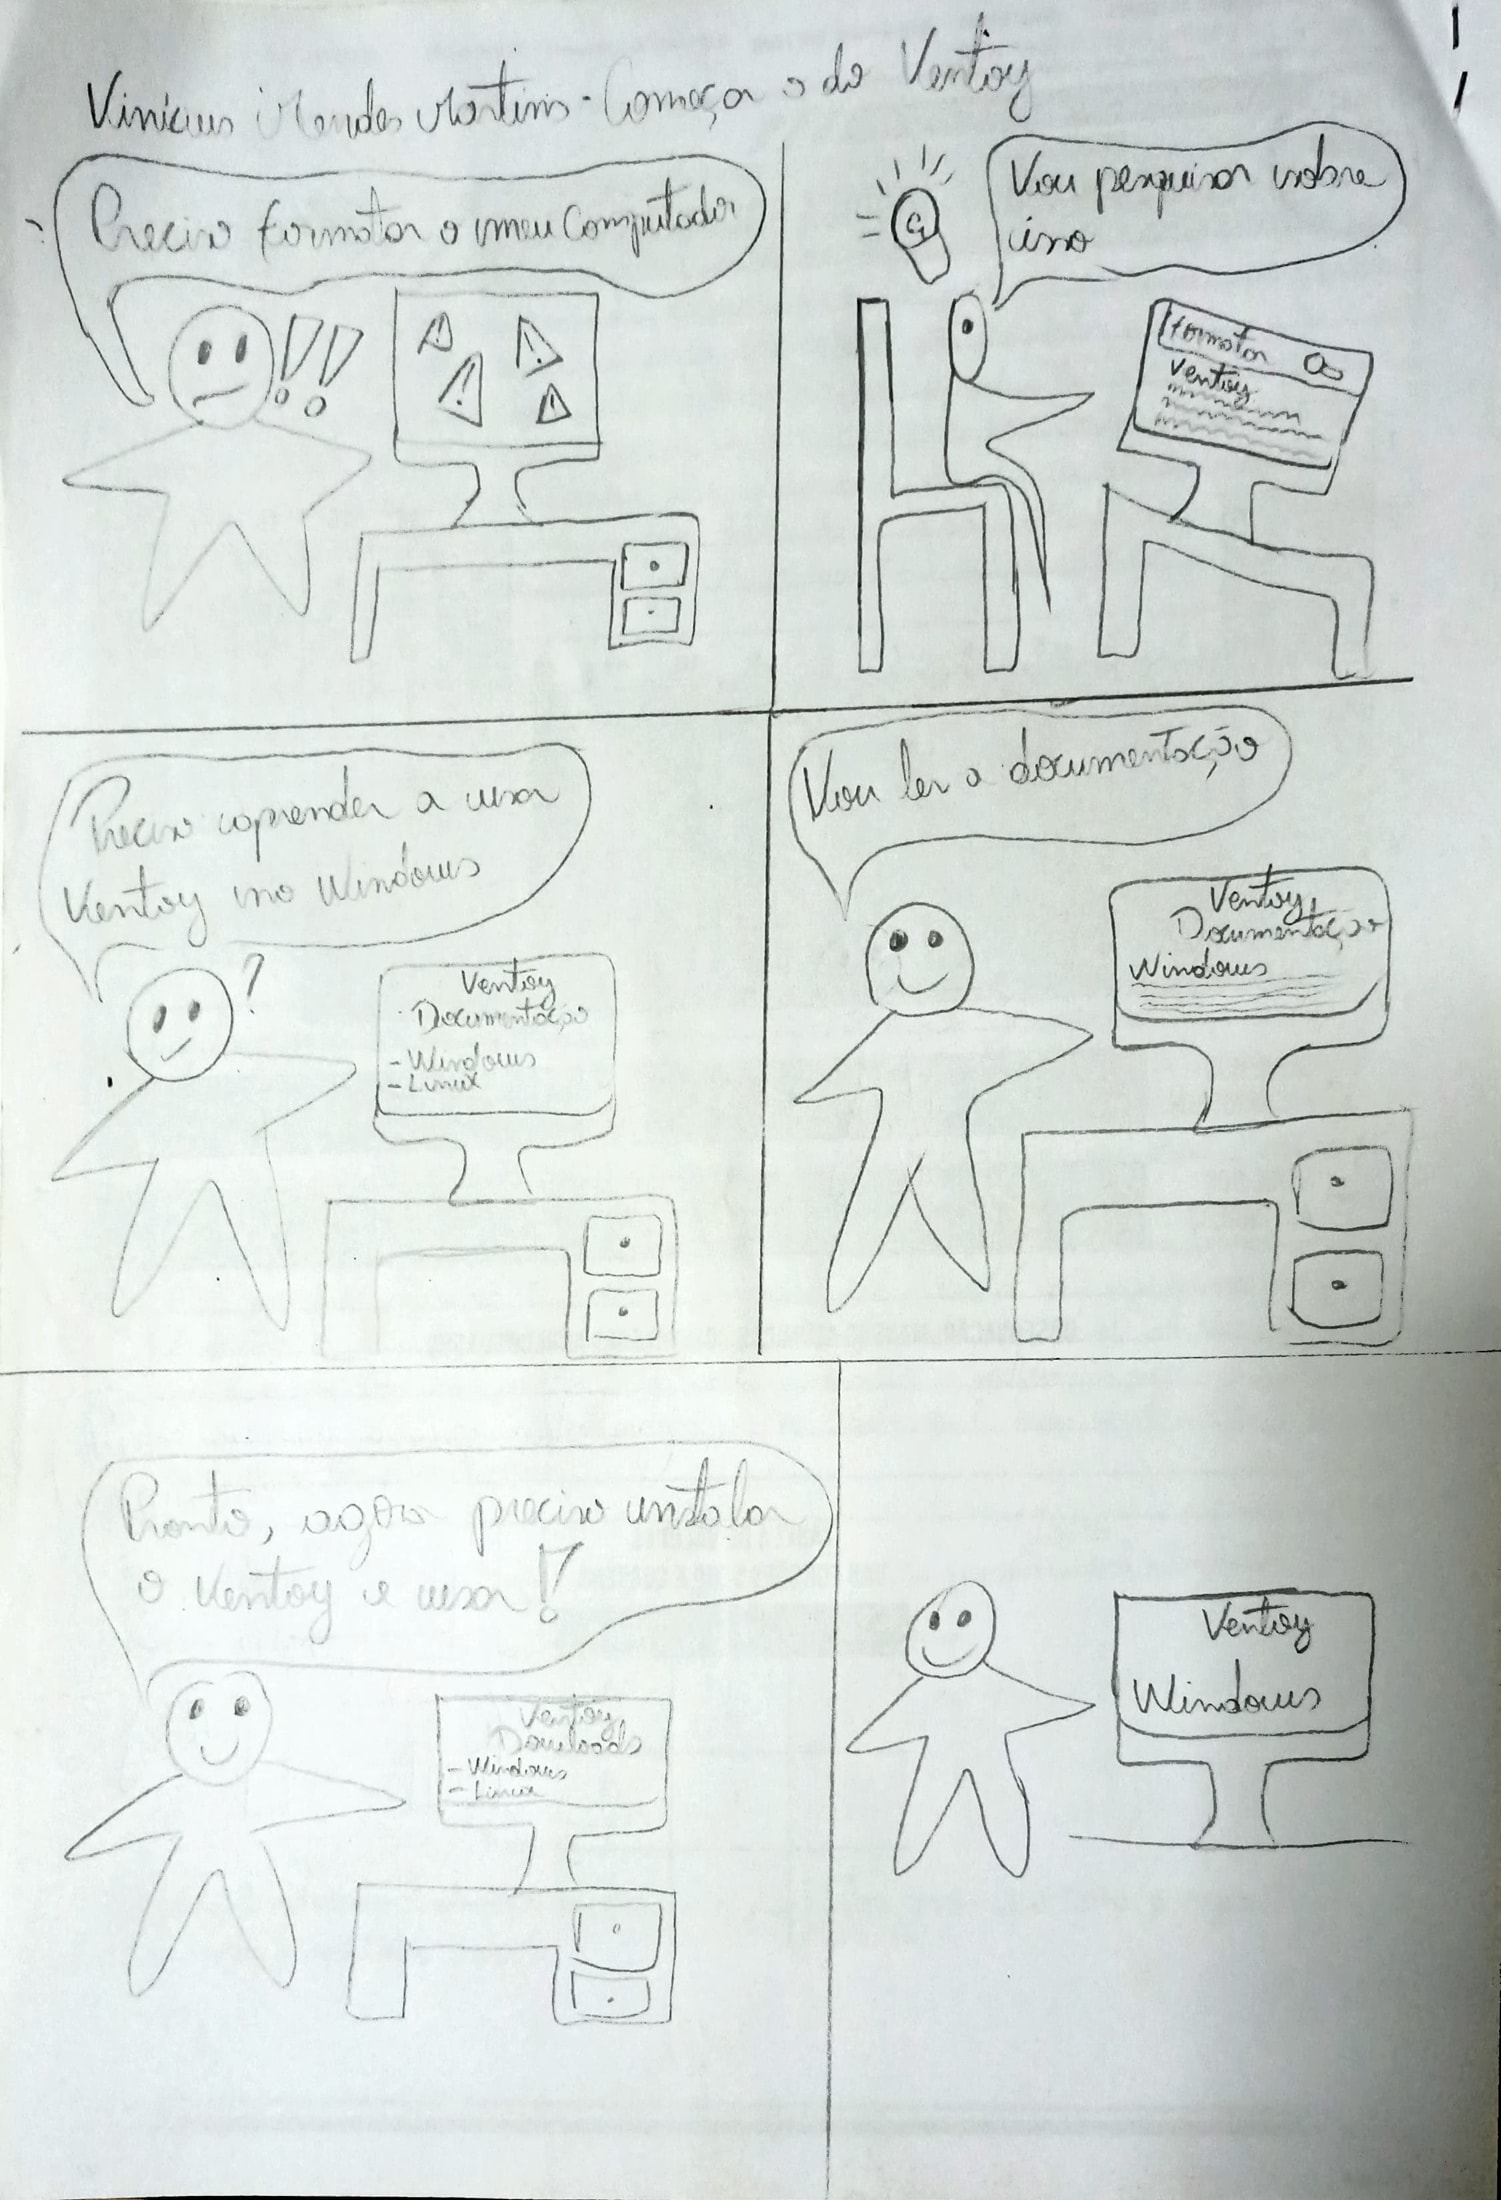 Vinícius Mendes Martins - Começa o do Ventoy
Preciso formatar o meu computador
!!
! ! ! !
Vou pesquisar sobre
isso
Formatar
Ventoy
Preciso aprender a usar
Ventoy no Windows
?
Ventoy
Documentação
- Windows
- Linux
Vou ler a documentação
Ventoy
Documentação
Windows
Pronto, agora preciso instalar
o Ventoy e usar!
Ventoy
Downloads
- Windows
- Linux
Ventoy
Windows